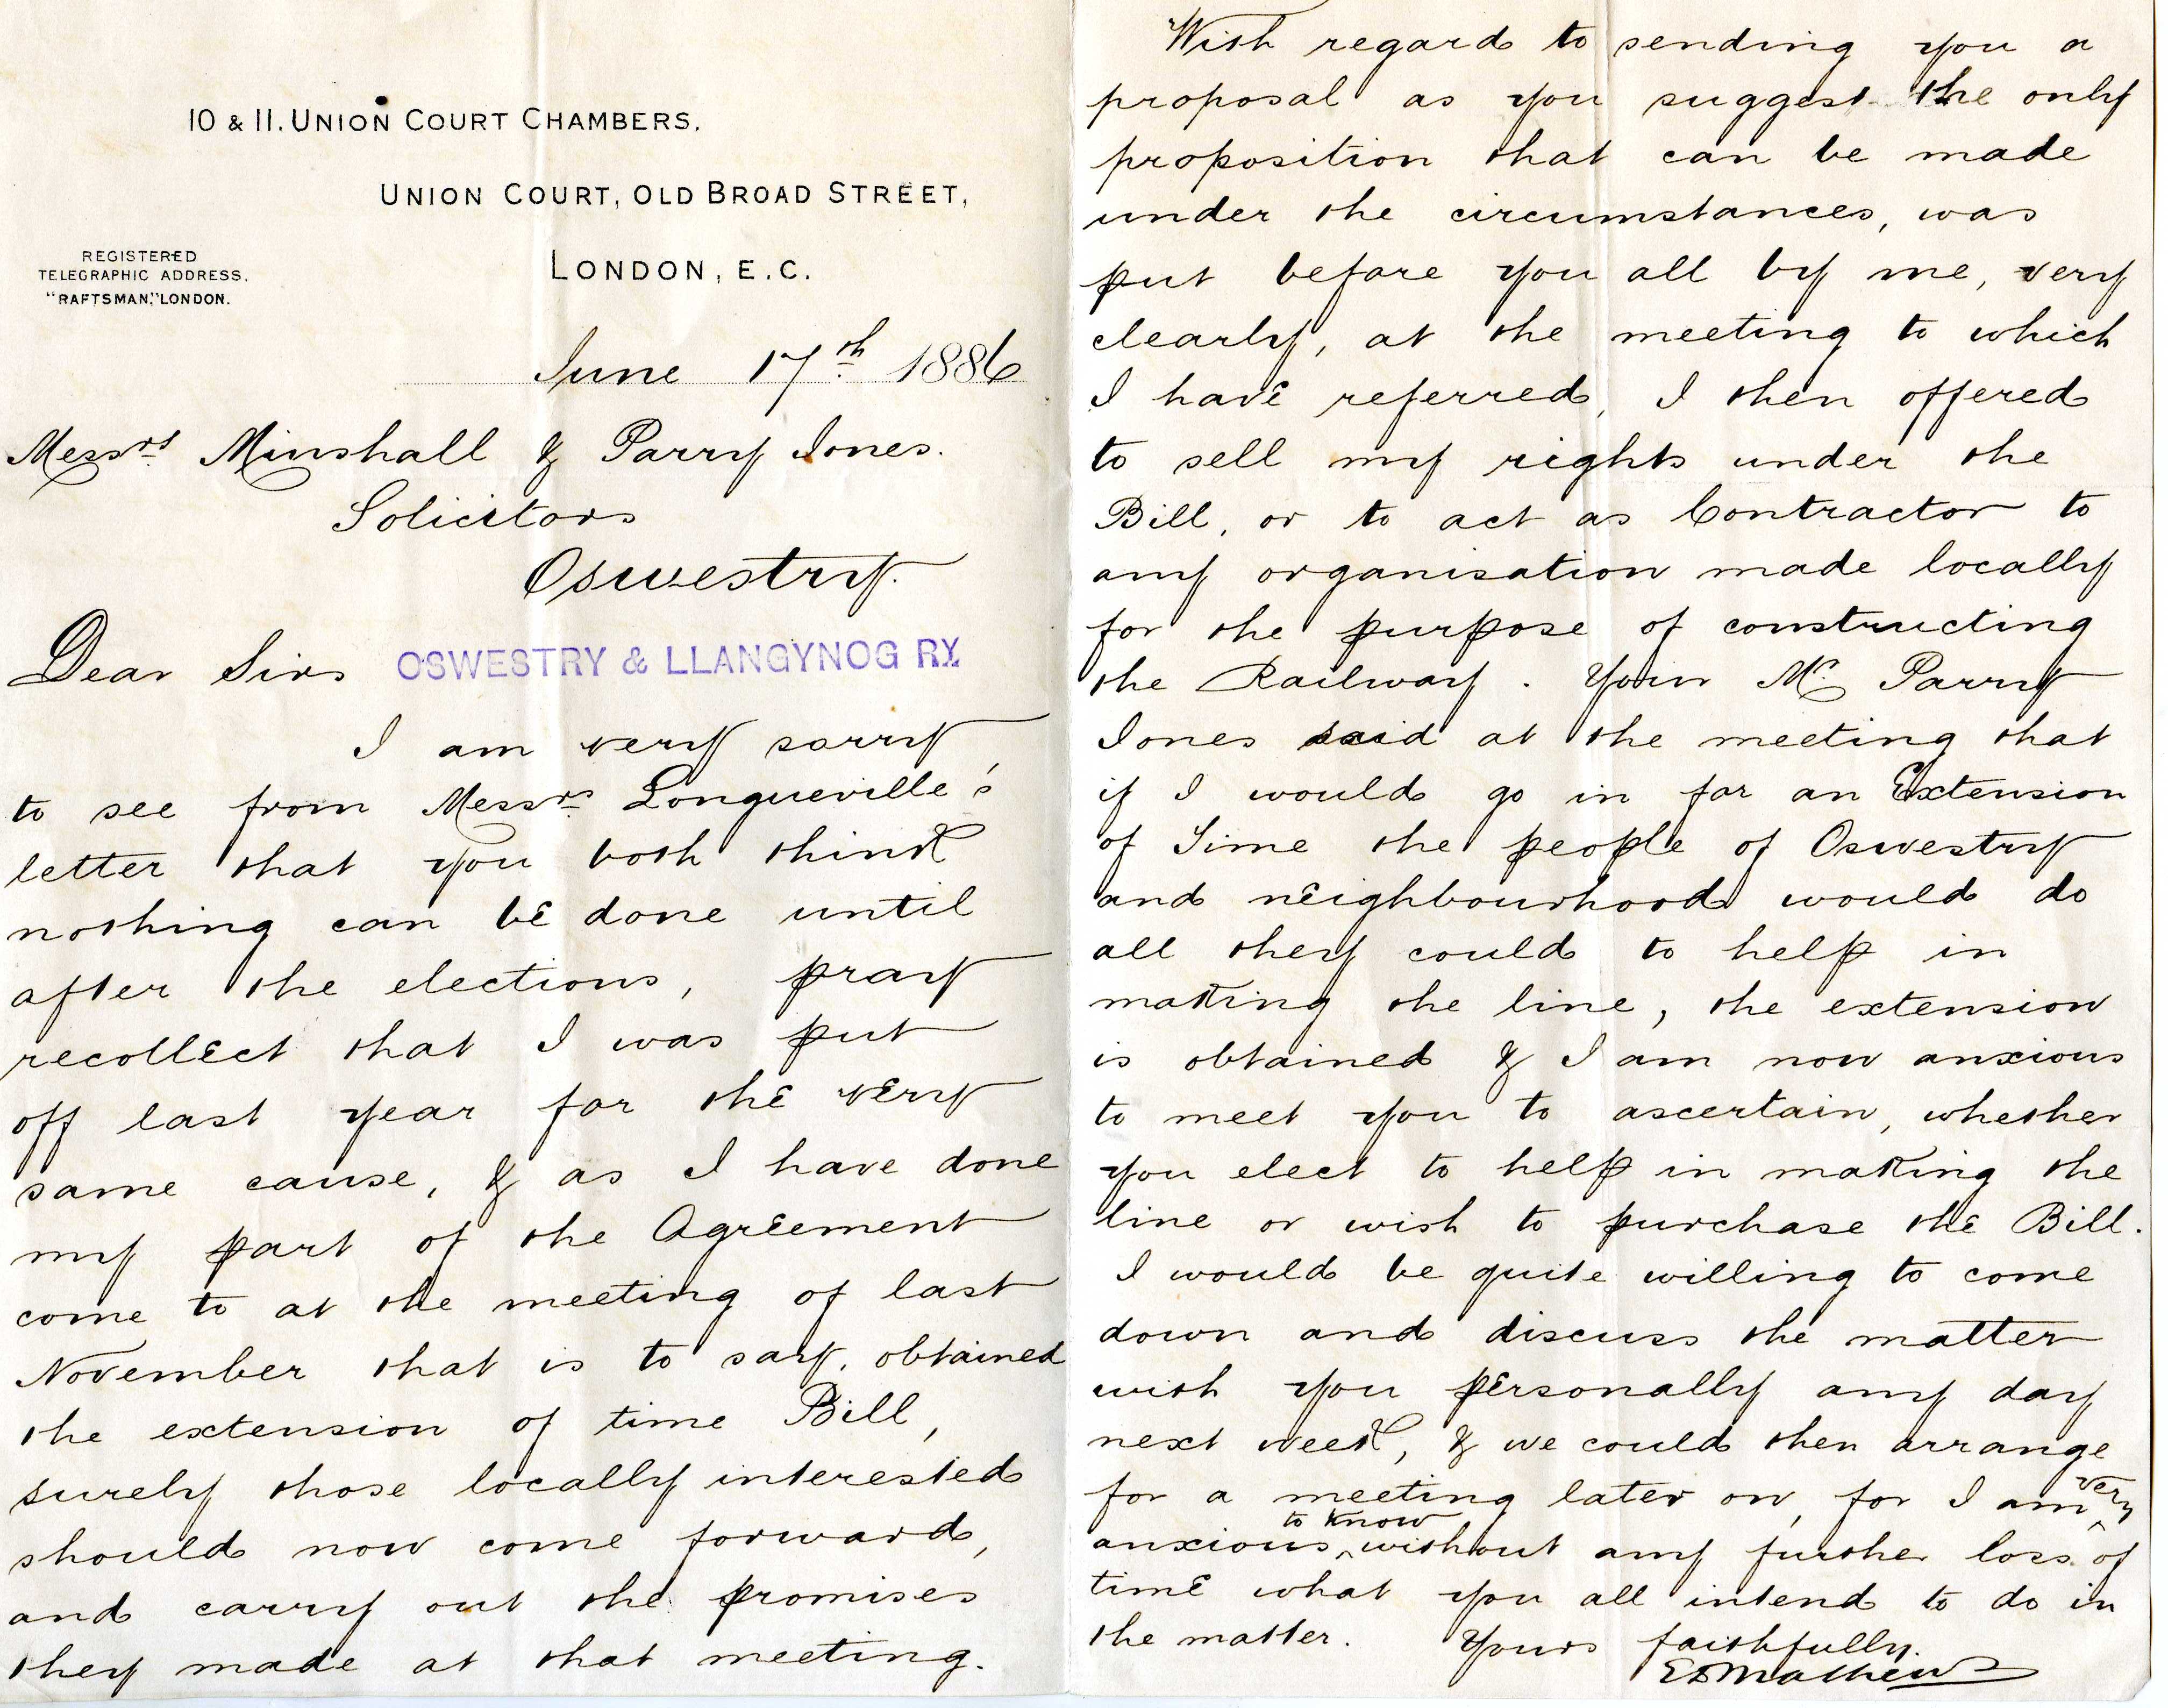 10 & 11. UNION COURT CHAMBERS,
UNION COURT, OLD BROAD STREET,
LONDON, E.C.
REGISTERED
TELEGRAPHIC ADDRESS.
"RAFTSMAN," LONDON.
June 17th 1886
Messrs Minshall & Parry Jones.
Solicitors
Oswestry.
Dear Sirs
OSWESTRY & LLANGYNOG RY
I am very sorry
to see from Messrs Longueville's
letter that you both think
nothing can be done until
after the elections, pray
recollect that I was put
off last year for the very
same cause, & as I have done
my part of the Agreement
come to at the meeting of last
November that is to say, obtained
the extension of time Bill,
surely those locally interested
should now come forward,
and carry out the promises
they made at that meeting.
With regard to sending you a
proposal as you suggest the only
proposition that can be made
under the circumstances, was
put before you all by me, very
clearly, at the meeting to which
I have referred, I then offered
to sell my rights under the
Bill, or to act as Contractor to
any organisation made locally
for the purpose of constructing
the Railway. Your Mr. Parry
Jones said at the meeting that
if I would go in for an Extension
of Time the people of Oswestry
and neighbourhood would do
all they could to help in
making the line, the extension
is obtained & I am now anxious
to meet you to ascertain, whether
you elect to help in making the
line or wish to purchase the Bill.
I would be quite willing to come
down and discuss the matter
with you personally any day
next week, & we could then arrange
for a meeting later on, for I am very
anxious, to know without any further loss of
time what you all intend to do in
the matter. Yours faithfully.
Mathews